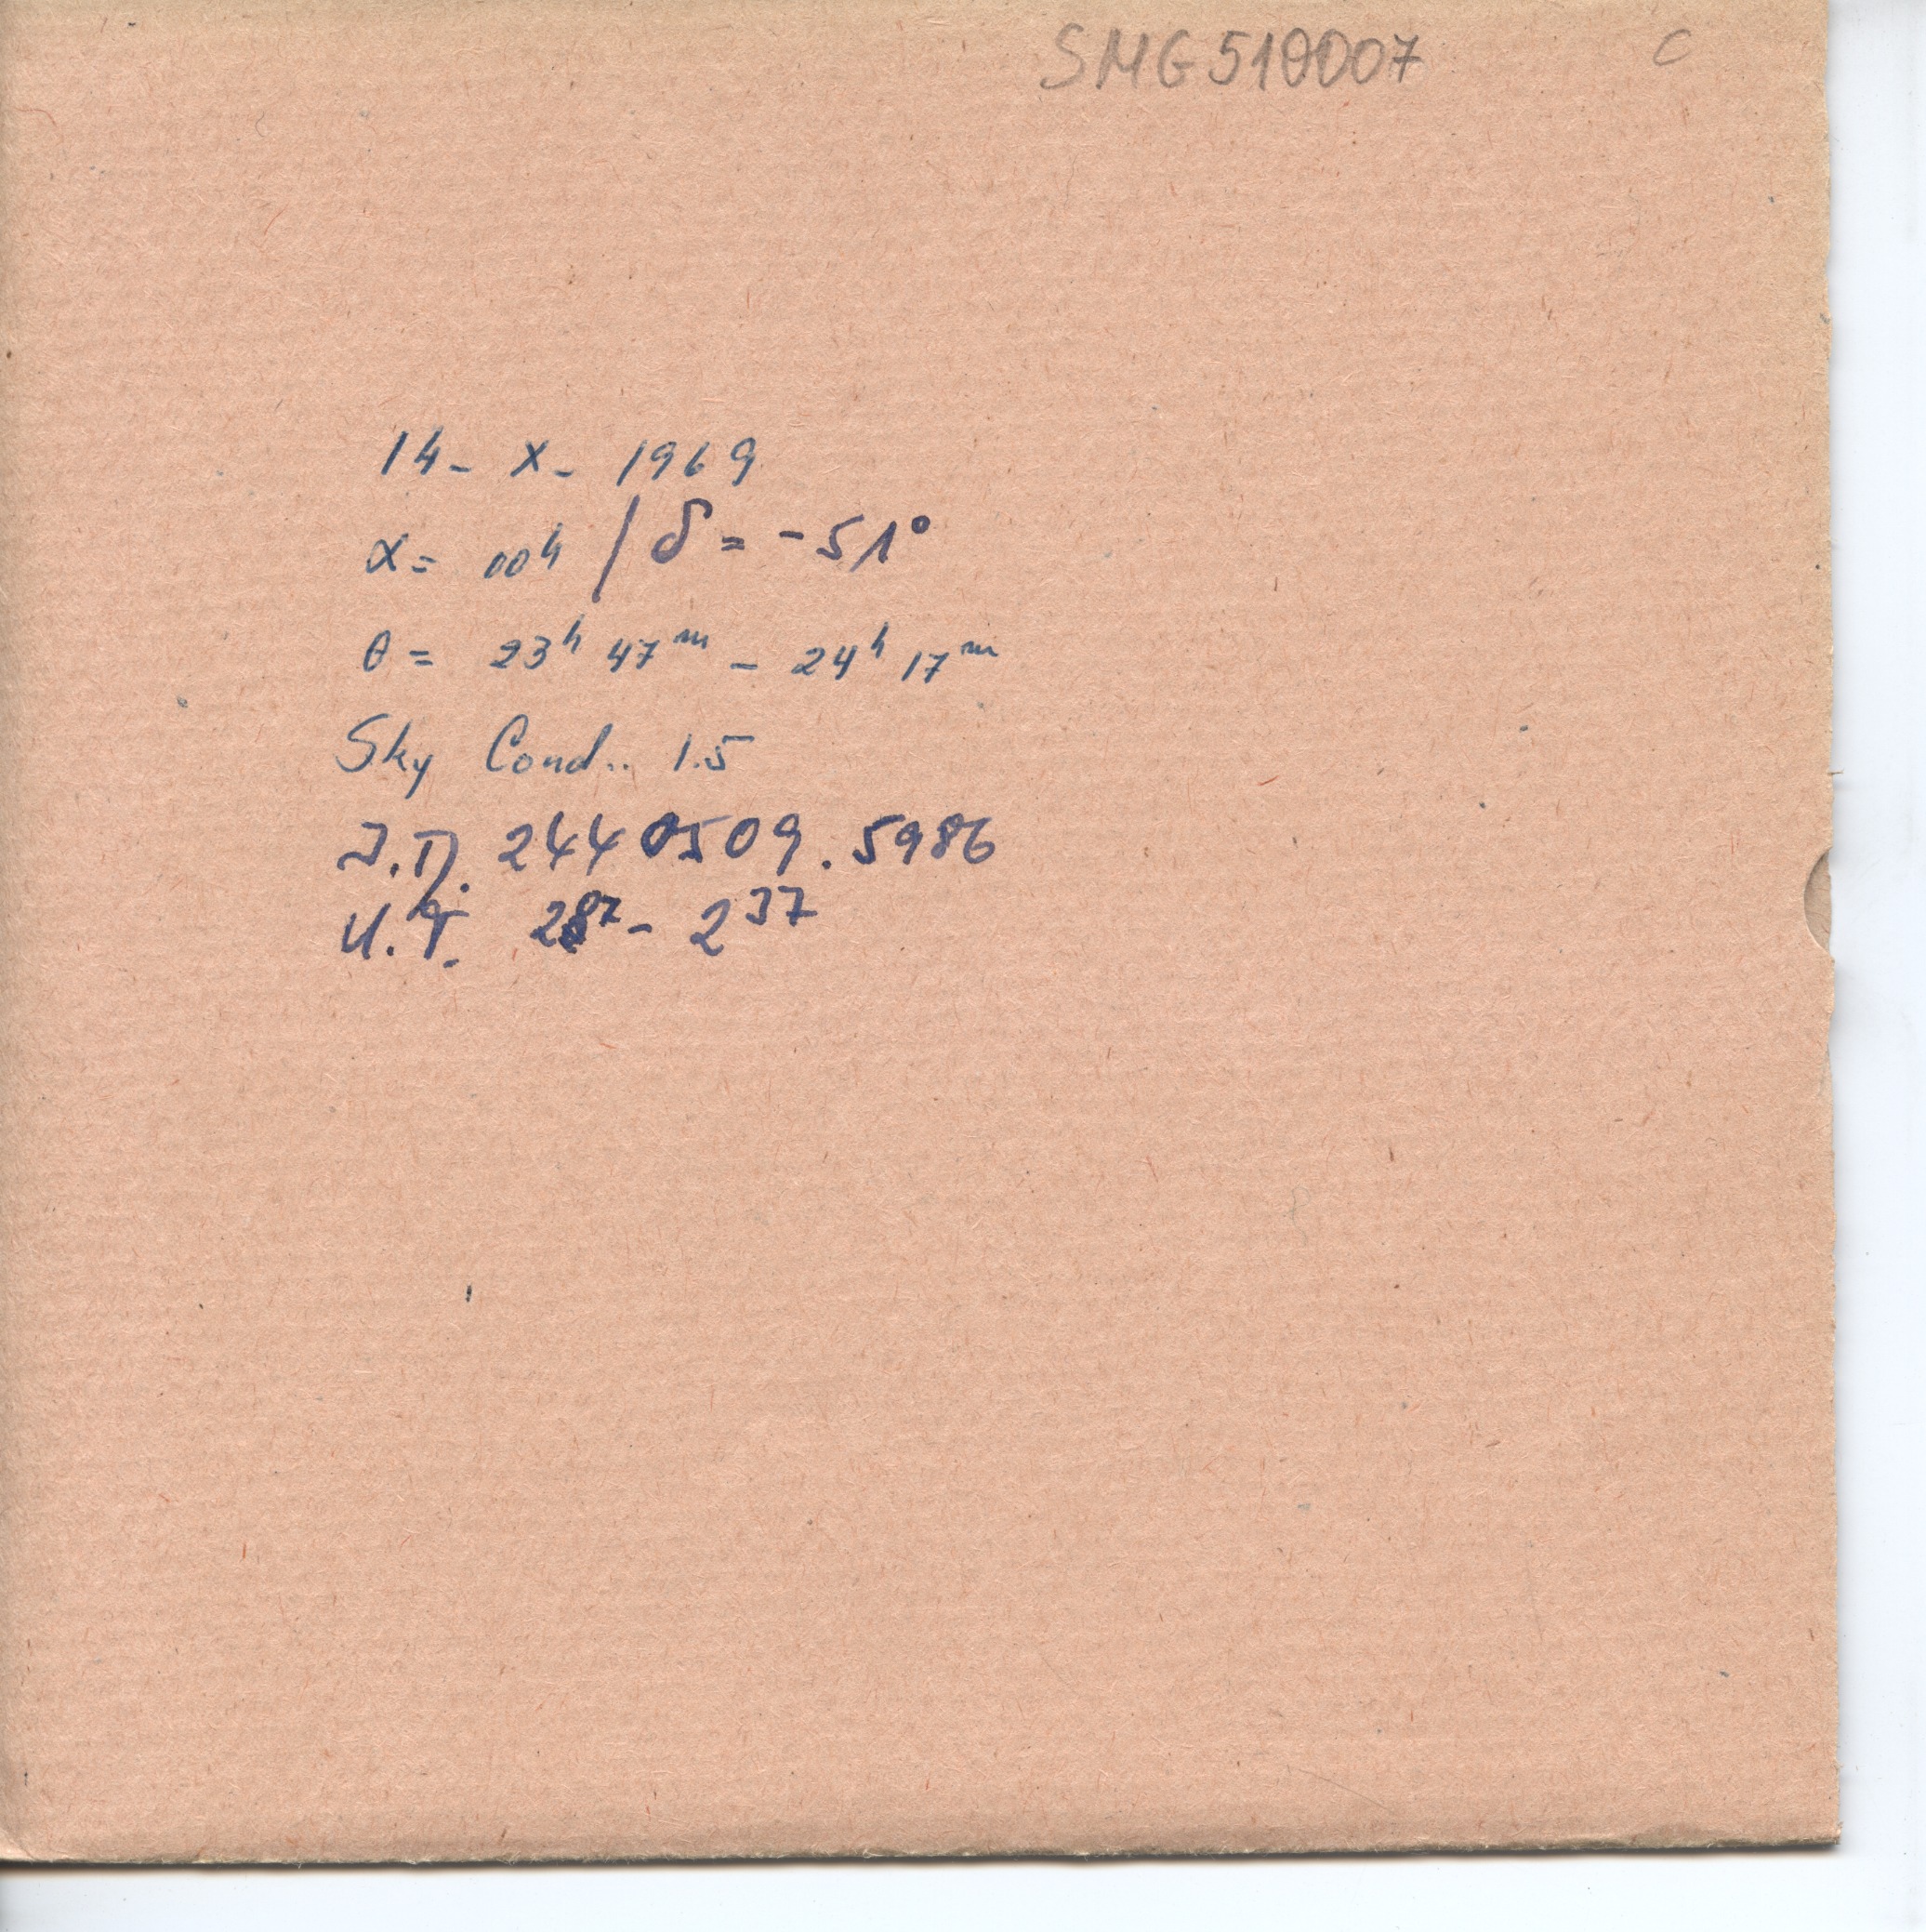 SMG510007 C
14 - X - 1969
α = 00ʰ / δ = -51°
θ = 23ʰ 47ᵐ - 24ʰ 17ᵐ
Sky Cond.. 1.5
J.D. 2440509.5986
U.T. - 2³⁷